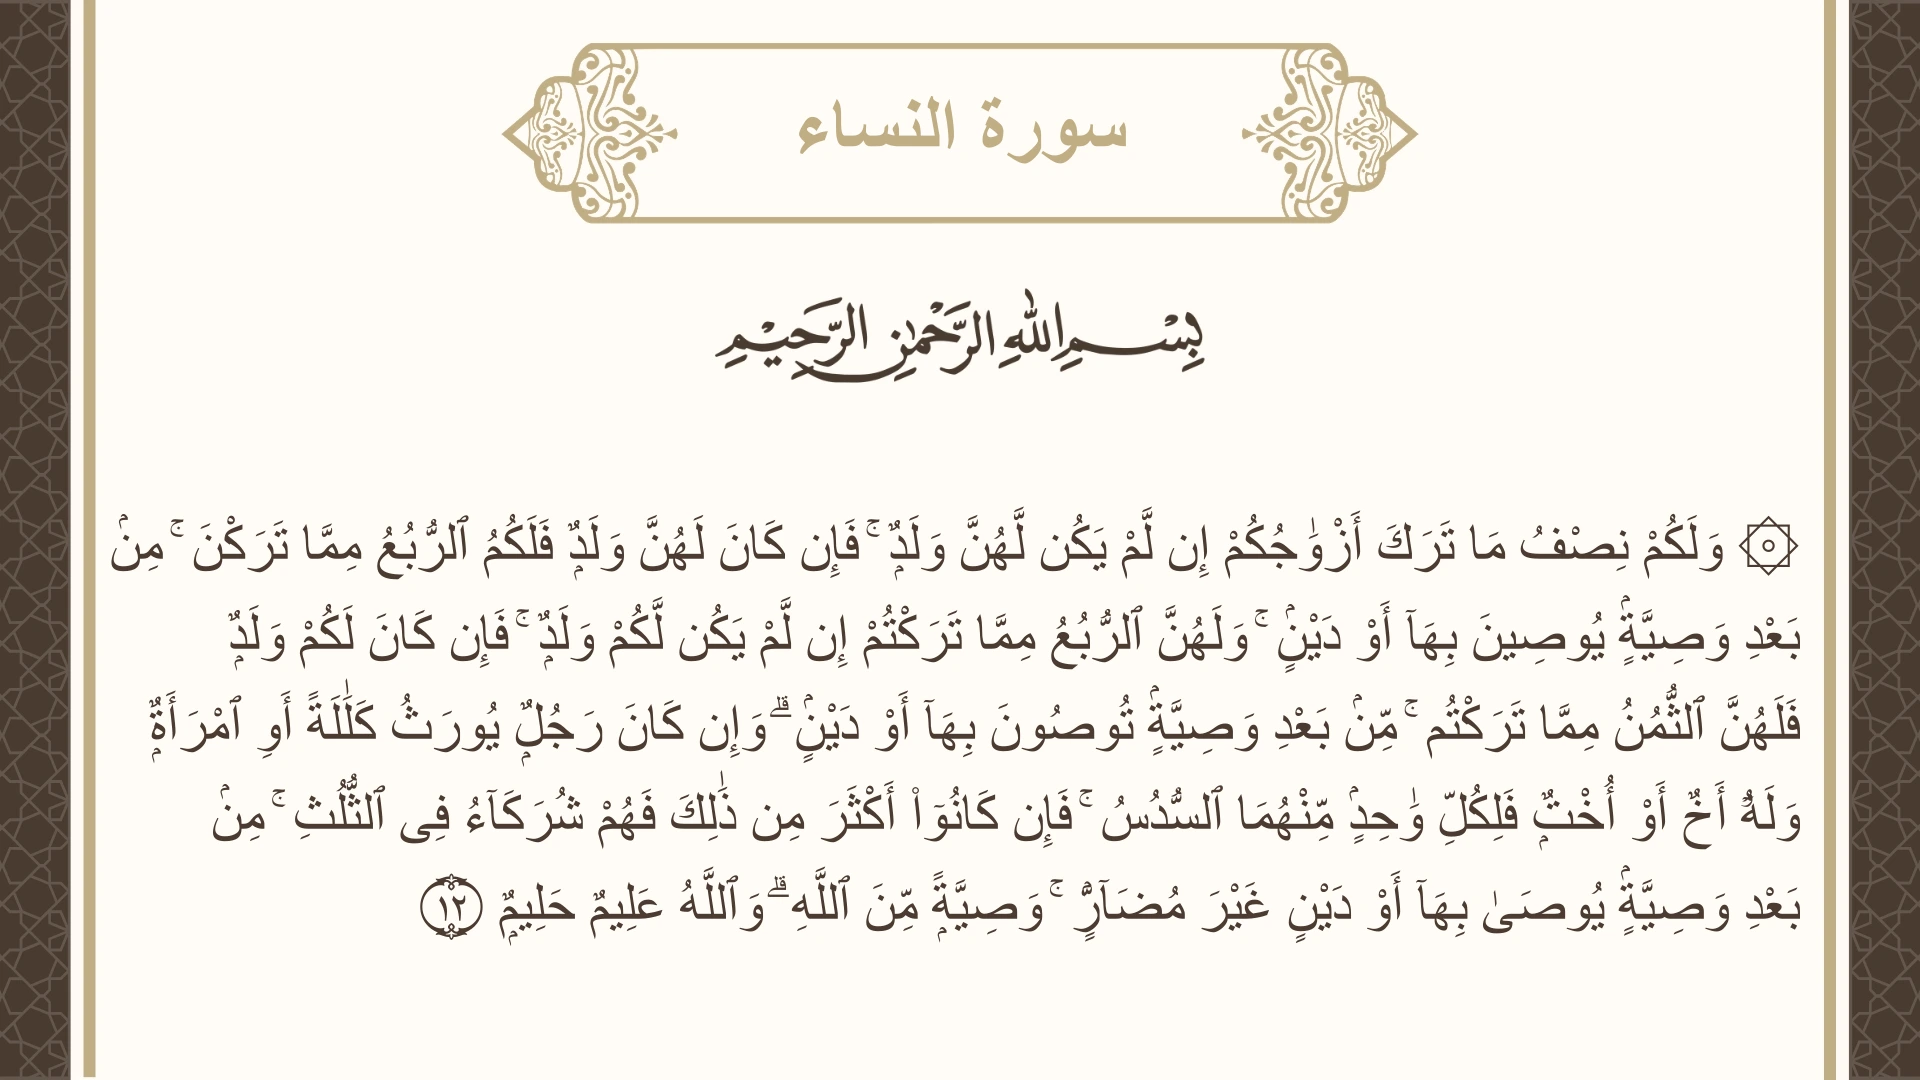 سورة النساء
بِسْمِ اللهِ الرَّحْمٰنِ الرَّحِيْمِ
۞ وَلَكُمْ نِصْفُ مَا تَرَكَ أَزْوَٰجُكُمْ إِن لَّمْ يَكُن لَّهُنَّ وَلَدٌۭ ۚ فَإِن كَانَ لَهُنَّ وَلَدٌۭ فَلَكُمُ ٱلرُّبُعُ مِمَّا تَرَكْنَ ۚ مِنۢ
بَعْدِ وَصِيَّةٍۢ يُوصِينَ بِهَآ أَوْ دَيْنٍۢ ۚ وَلَهُنَّ ٱلرُّبُعُ مِمَّا تَرَكْتُمْ إِن لَّمْ يَكُن لَّكُمْ وَلَدٌۭ ۚ فَإِن كَانَ لَكُمْ وَلَدٌۭ
فَلَهُنَّ ٱلثُّمُنُ مِمَّا تَرَكْتُم ۚ مِّنۢ بَعْدِ وَصِيَّةٍۢ تُوصُونَ بِهَآ أَوْ دَيْنٍۢ ۗ وَإِن كَانَ رَجُلٌۭ يُورَثُ كَلَـٰلَةً أَوِ ٱمْرَأَةٌۭ
وَلَهُۥٓ أَخٌ أَوْ أُخْتٌۭ فَلِكُلِّ وَٰحِدٍۢ مِّنْهُمَا ٱلسُّدُسُ ۚ فَإِن كَانُوٓا۟ أَكْثَرَ مِن ذَٰلِكَ فَهُمْ شُرَكَآءُ فِى ٱلثُّلُثِ ۚ مِنۢ
بَعْدِ وَصِيَّةٍۢ يُوصَىٰ بِهَآ أَوْ دَيْنٍ غَيْرَ مُضَآرٍّۢ ۚ وَصِيَّةًۭ مِّنَ ٱللَّهِ ۗ وَٱللَّهُ عَلِيمٌ حَلِيمٌۭ ١٢